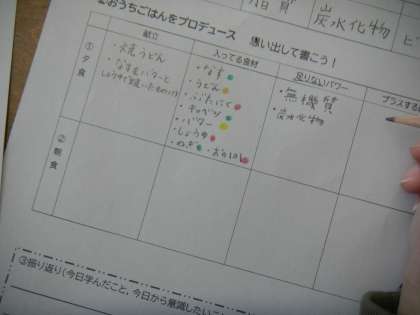 脂質
炭水化物
ビ
②おうちごはんをプロデュース 思い出して書こう!
献立
入ってる食材
足りないパワー
プラスする
①夕食
・焼うどん
・なすをバターと
しょうゆで焼いたもの
・なす
・うどん
・ぶたにく
・キャベツ
・バター
・しょうゆ
・ねぎ
・無機質
・炭水化物
②朝食
③振り返り(今日学んだこと、今日から意識したいこ